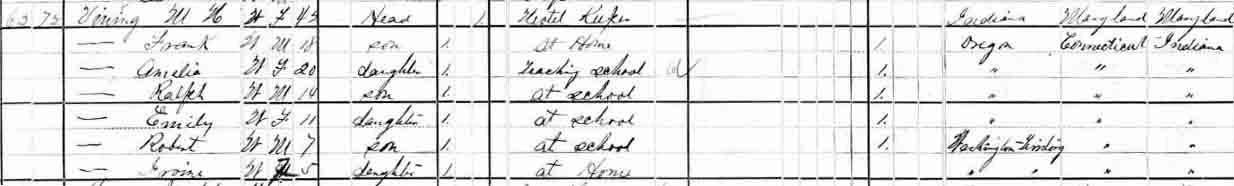 63 73 Vining M H W F 43 Head 1 Hotel Keeper Indiana Maryland Maryland
— Frank W M 18 son 1. at Home 1. Oregon Connecticut Indiana
— Amelia W F 20 daughter 1. Teaching school 1. " " "
— Ralph W M 14 son 1. at school 1. " " "
— Emily W F 11 daughter 1. at school 1. " " "
— Robert W M 7 son 1. at school 1. Washington " "
— Irvine W 5 daughter 1. at Home " " " "